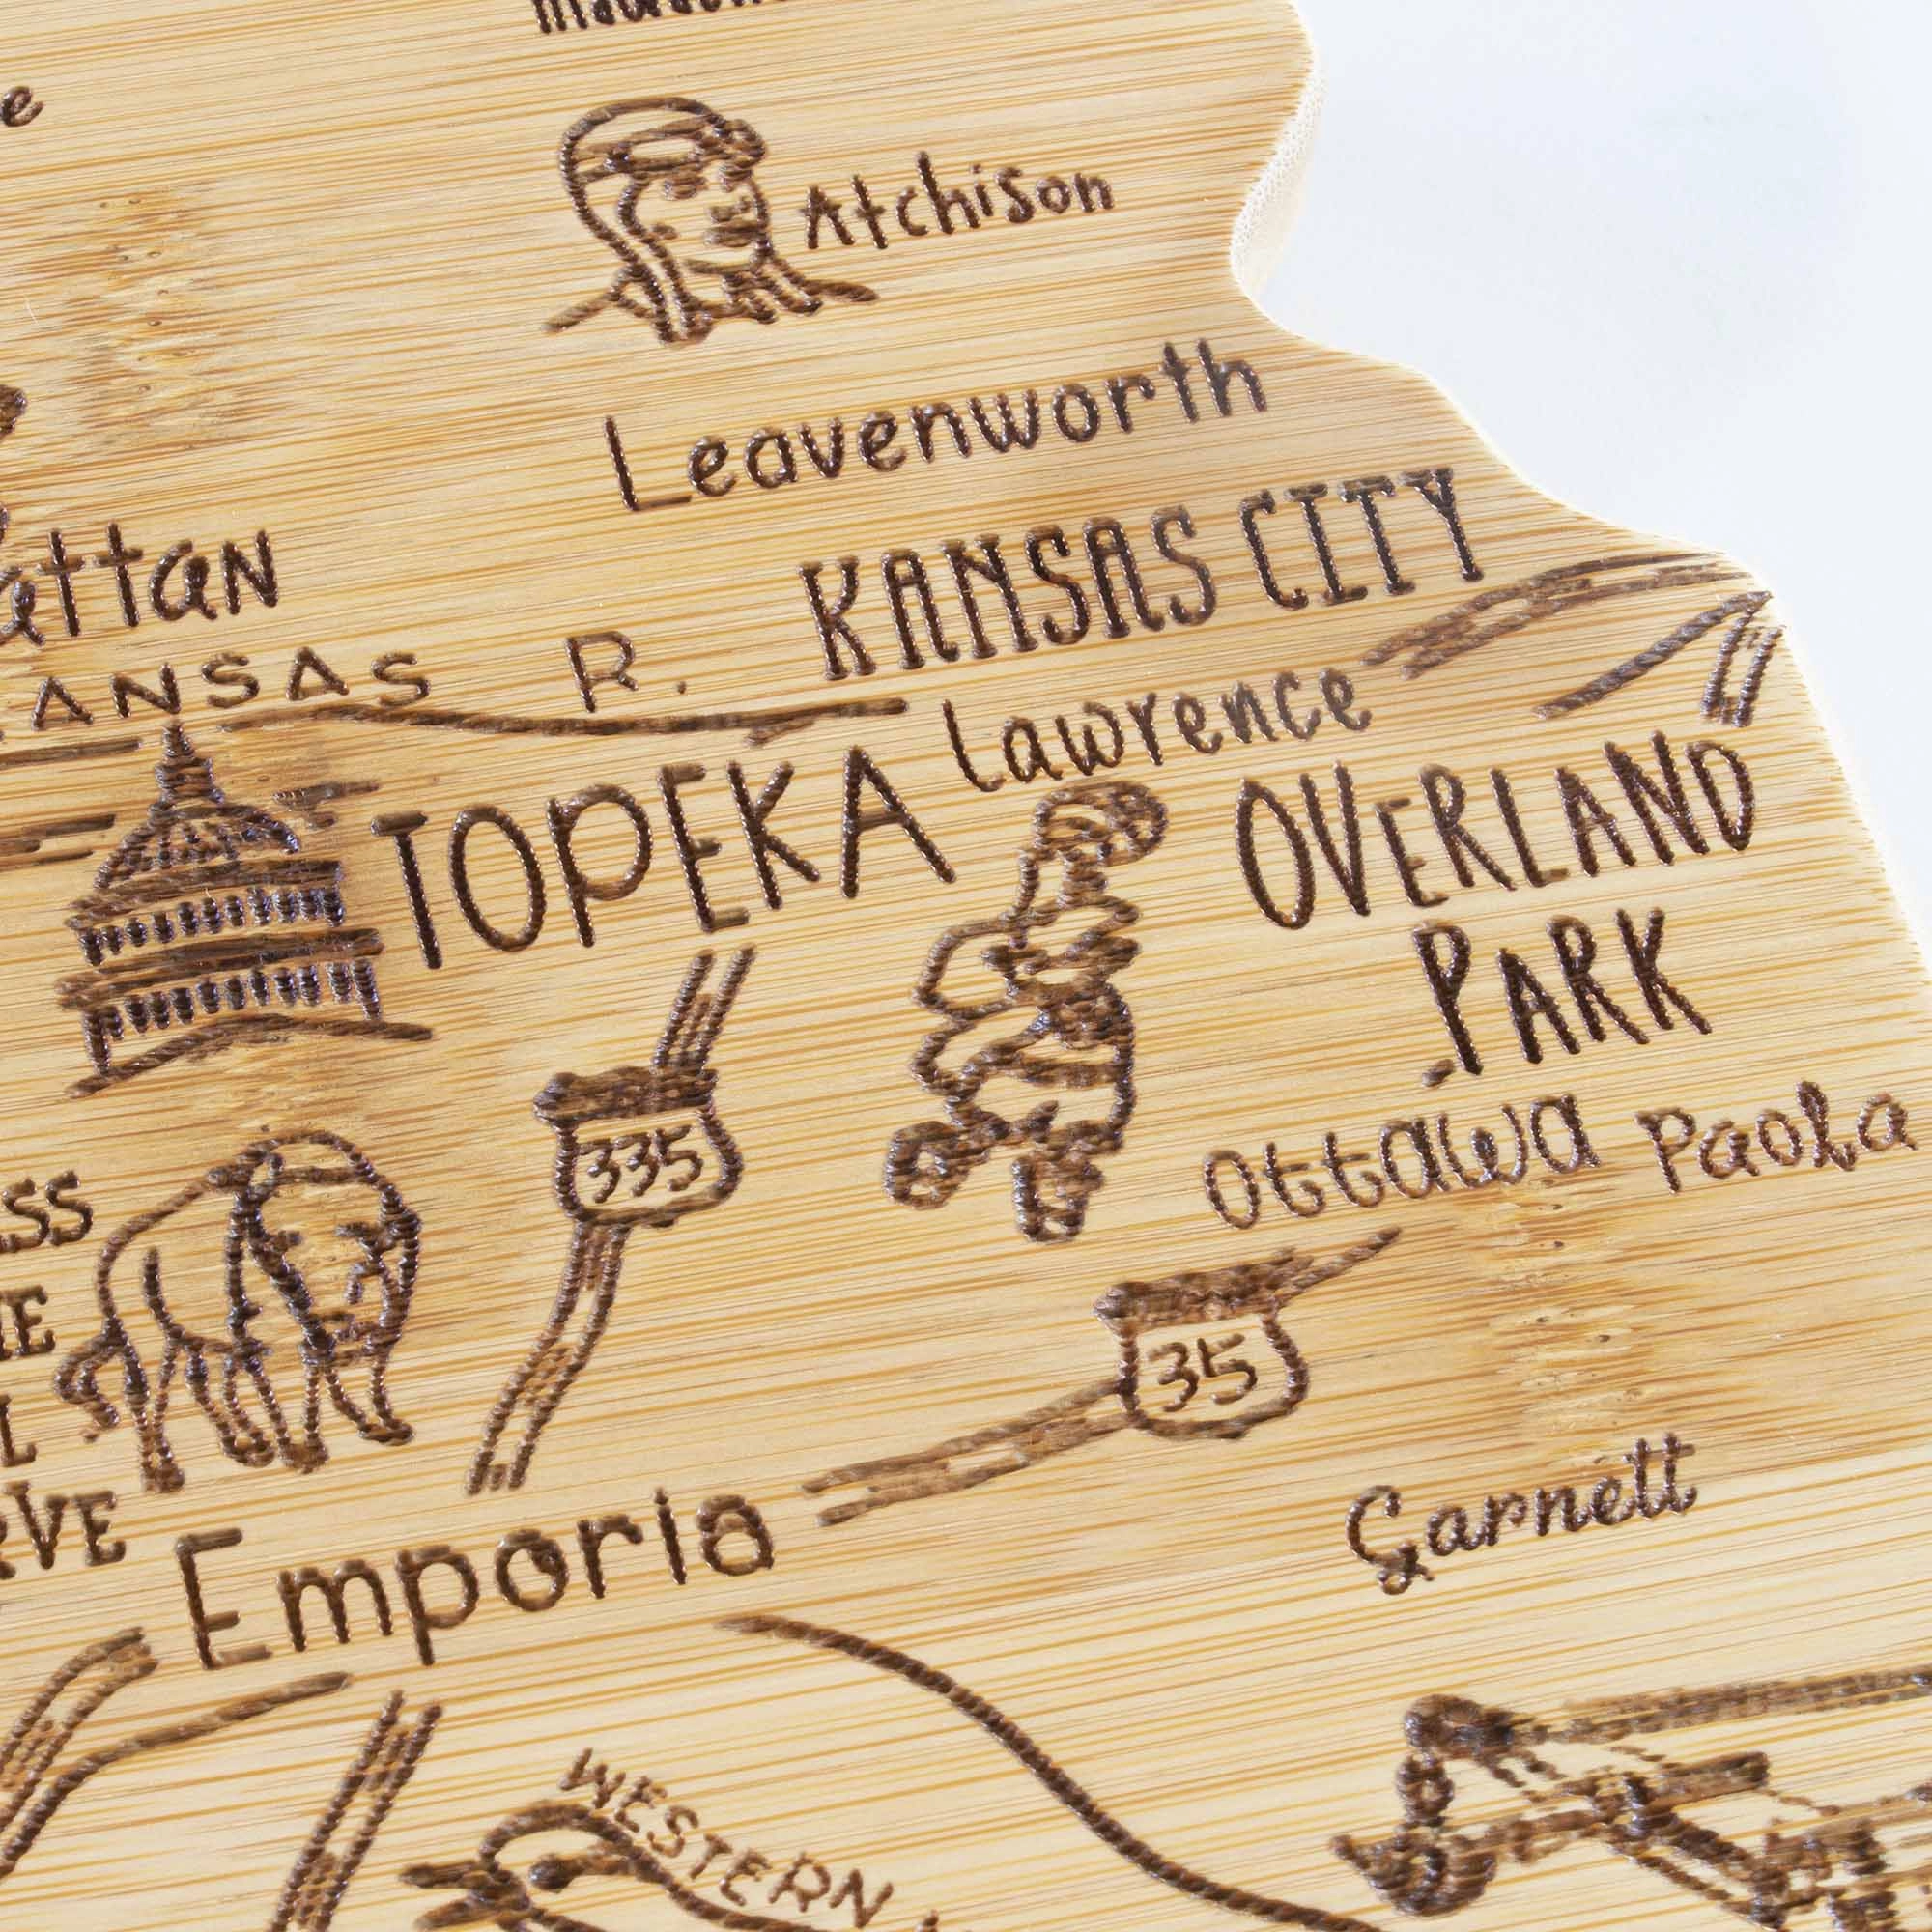 Atchison
Leavenworth
KANSAS CITY
ANSAS R.
Lawrence
TOPEKA
OVERLAND
PARK
335
Ottawa
Paola
35
Garnett
Emporia
WESTERN